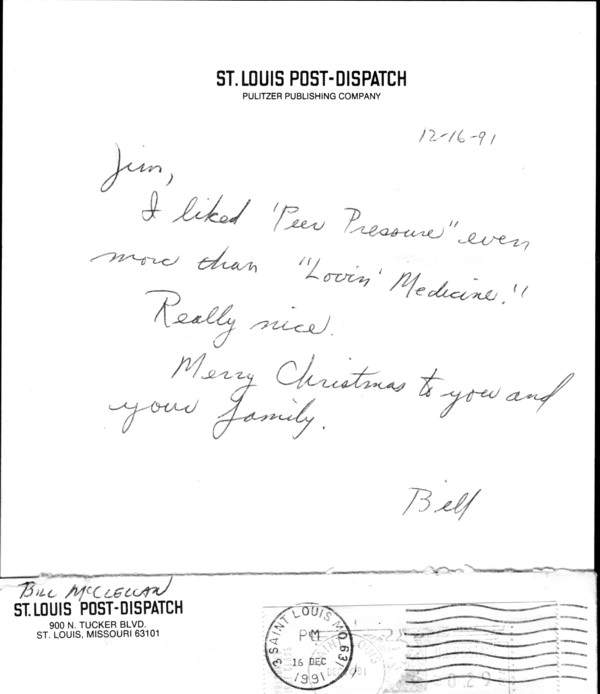 ST. LOUIS POST-DISPATCH
PULITZER PUBLISHING COMPANY
12-16-91
Jim,
I liked 'Peer Pressure" even
more than "Lovin' Medicine."
Really nice.
Merry Christmas to you and
your family.
Bill
BILL McCLELLAN
ST. LOUIS POST-DISPATCH
900 N. TUCKER BLVD.
ST. LOUIS, MISSOURI 63101
SAINT LOUIS MO 631
PM
16 DEC
1991